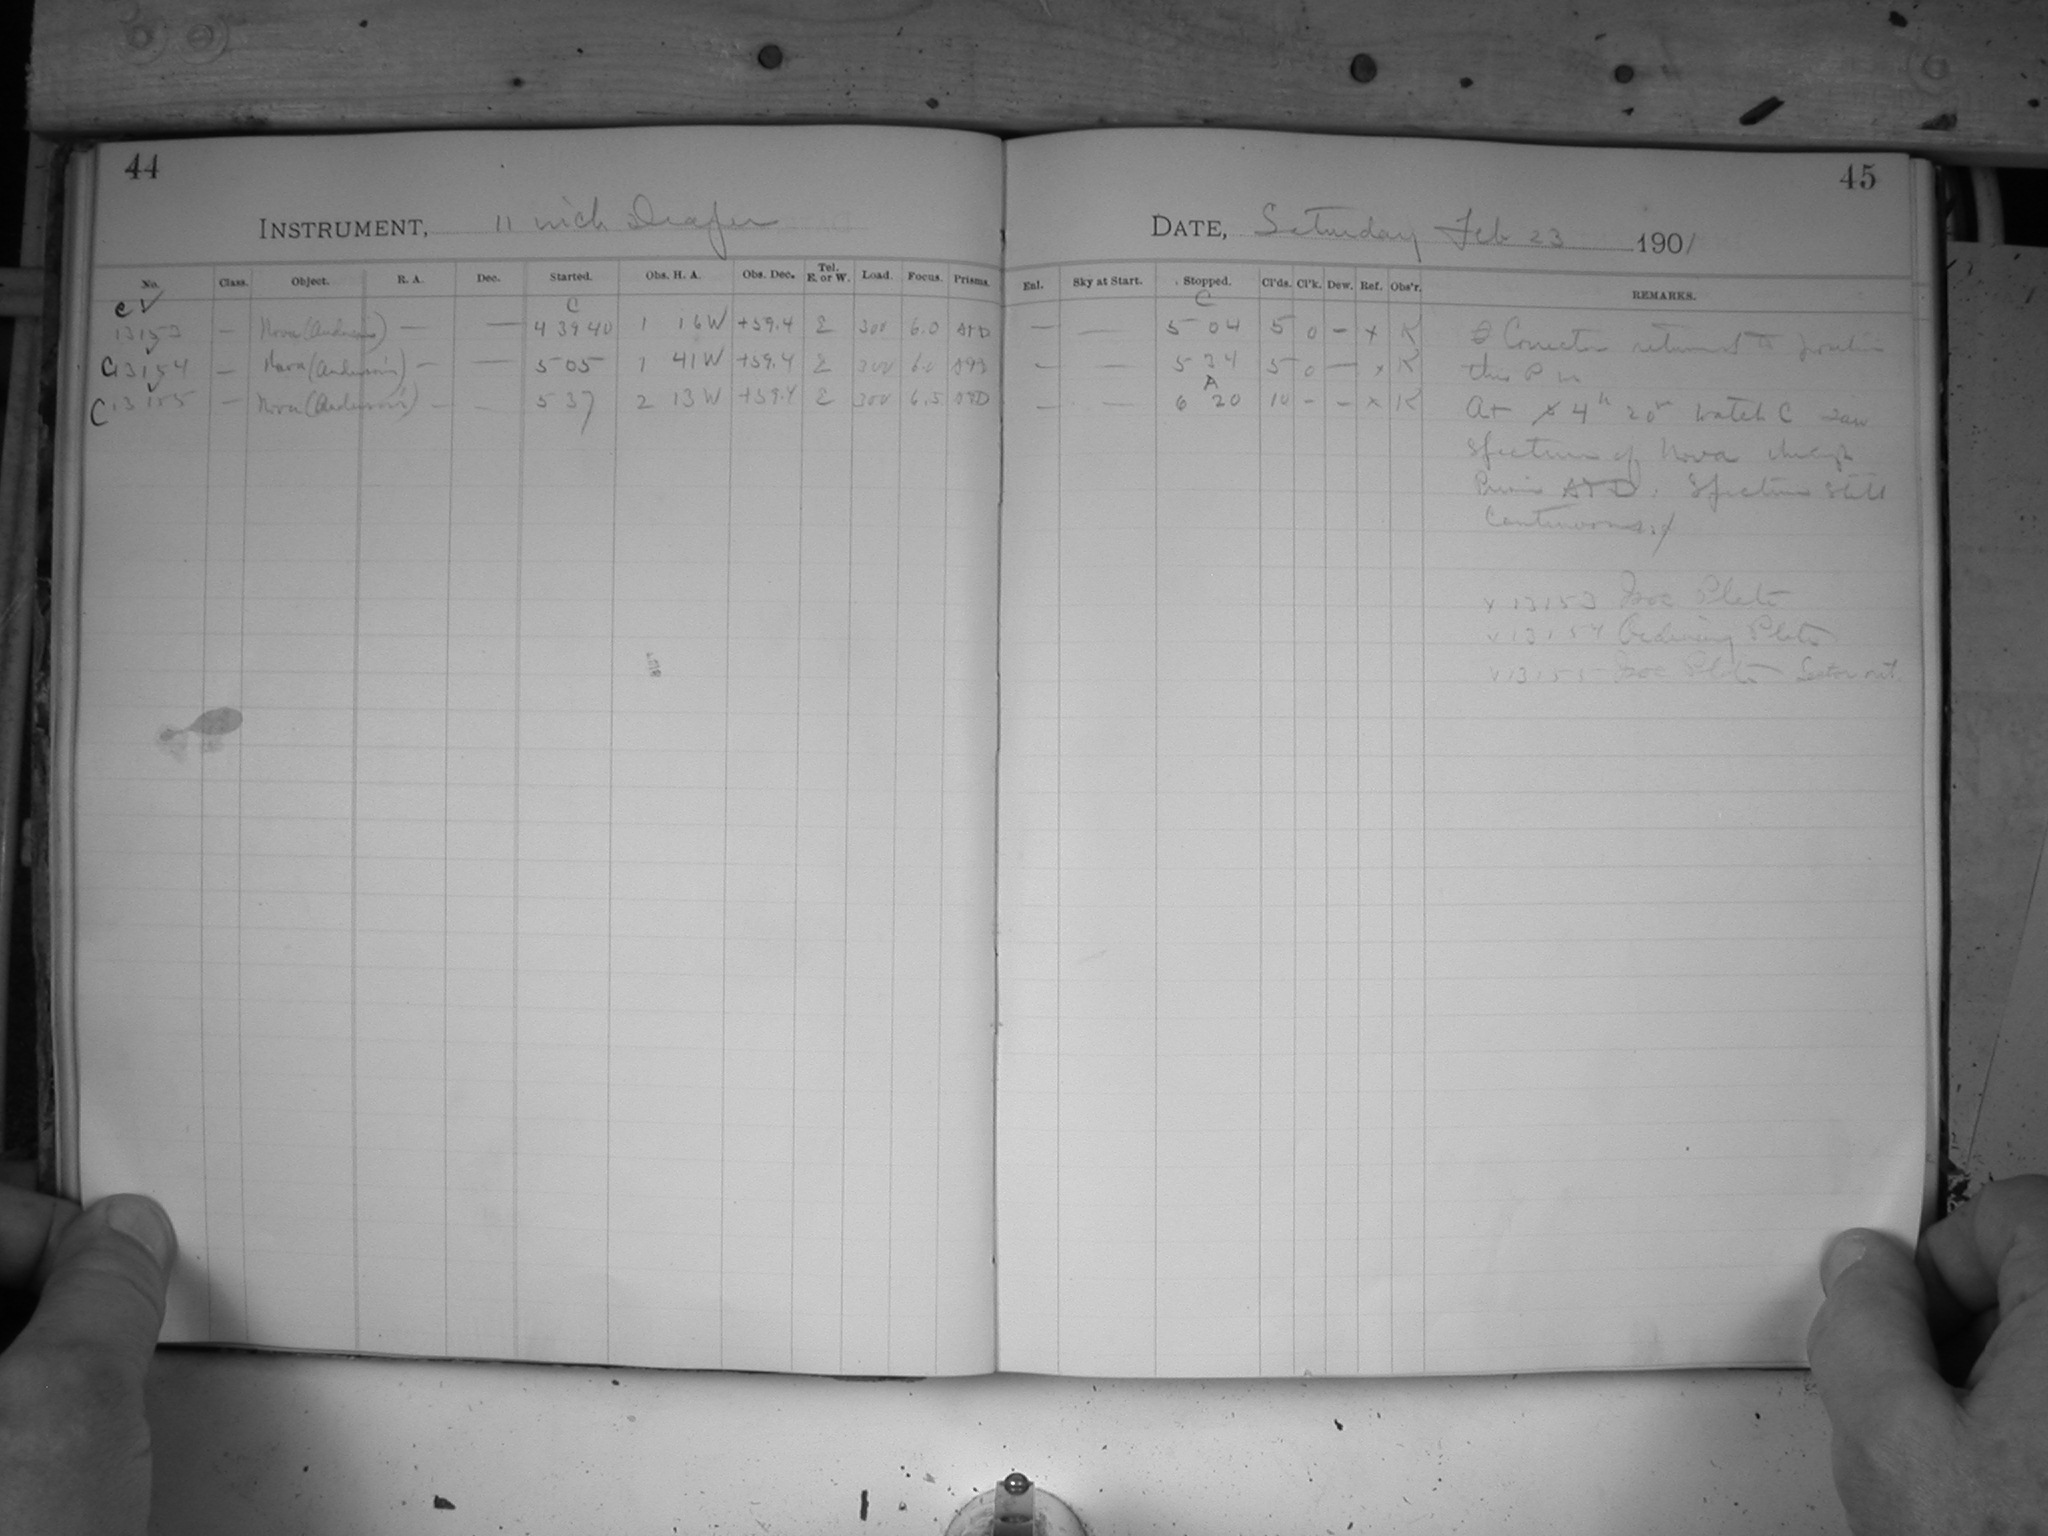 44
INSTRUMENT, 11 inch Draper
No. Class. Object. R. A. Dec. Started. Obs. H. A. Obs. Dec. Tel. E. or W. Load. Focus. Prisms.
C
C
13153 — Nova (Anderson's) — — 4 39 40 1 16 W +59.4 E 300 6.0
C 13154 — Nova (Anderson's) — — 5 05 1 41 W +59.4 E 300 6.0
C 13155 — Nova (Anderson's) — — 5 37 2 13 W +59.4 E 300 6.5
45
DATE, Saturday Feb 23 1901
Enl. Sky at Start. Stopped. Cl'ds. Cl'k. Dew. Ref. Obs'r. REMARKS.
C
— — 5 04 5 0 — x K Corrector returned to
— — 5 34 5 0 — x K this P M
A
— — 6 20 10 - - x K At 4h 20m Watch C saw
Spectrum of Nova through
Prism . Spectrum still
Continuous.
13153 Iso. Plate
13154 Ordinary Plate
13155 Iso. Plate